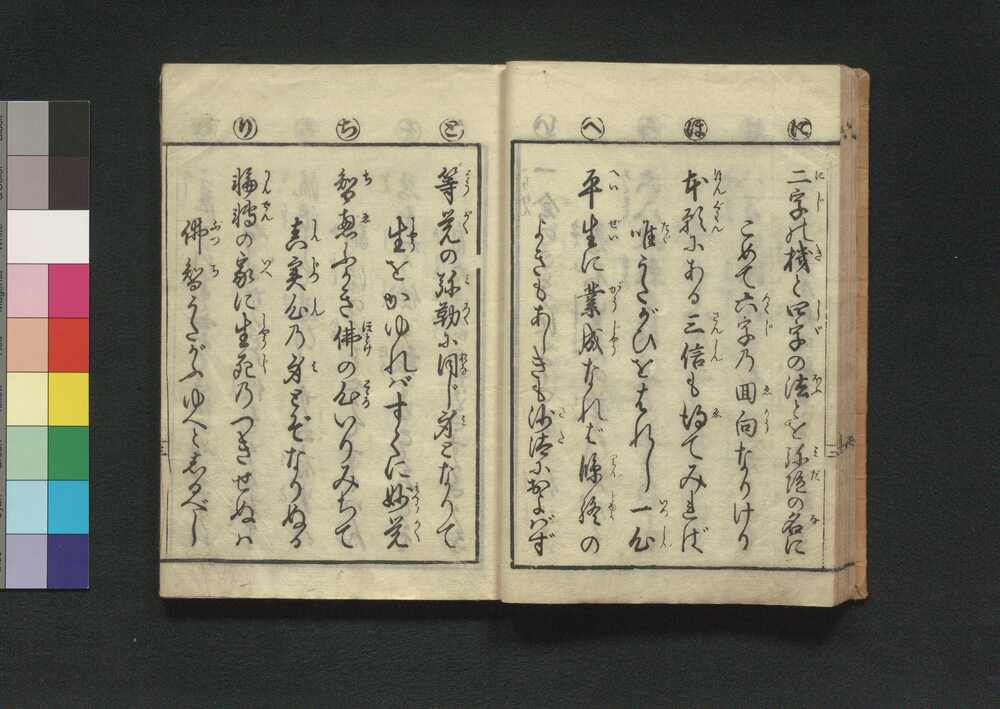 に
二字の機と四字の法とを弥陀の名に
こめて六字乃回向なりけり
ほ
本願にある三信も切てみれば
唯うたがひをはれし一心
へ
平生に業成なれば臨終の
よきもあしきも沙汰におよばず
と
等覚の弥勒に同じ身となりて
生をかゆればすぐに妙覚
ち
智恵ふかき佛の心いりみちて
真実心乃身とぞなりぬる
り
輪轉の家に生死乃つきせぬハ
佛智うたがふゆへとしるべし